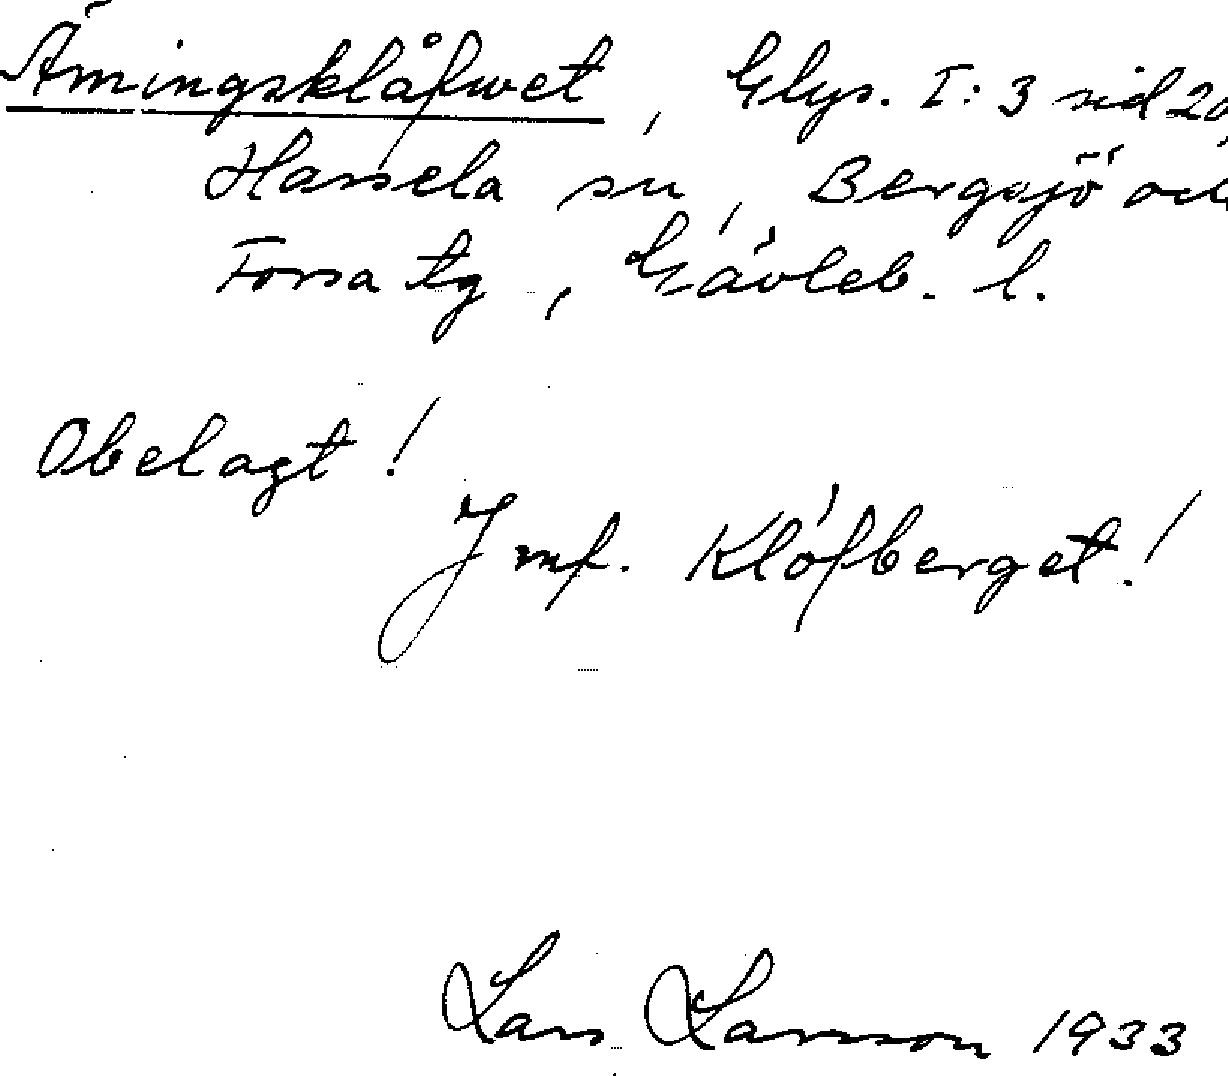 Ämingsklåfwet, Glys. I: 3 sid 20
Hassela sn, Bergsjö och
Forsa tg, Gävleb. l.
Obelagt!
Jmf. Klöfberget!
Lars Larsson 1933